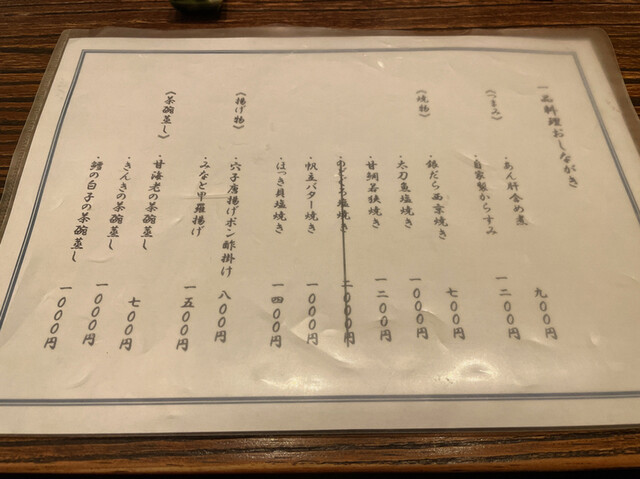 一品料理おしながき
《つまみ》
・あん肝含め煮 九〇〇円
・自家製からすみ 一二〇〇円
《焼物》
・銀だら西京焼き 七〇〇円
・太刀魚塩焼き 一〇〇〇円
・甘鯛若狭焼き 一二〇〇円
・のどぐろ塩焼き 二〇〇〇円
・帆立バター焼き 一〇〇〇円
・ほっき貝塩焼き 一四〇〇円
《揚げ物》
・穴子唐揚げポン酢掛け 八〇〇円
・みなと甲羅揚げ 一五〇〇円
《茶碗蒸し》
・甘海老の茶碗蒸し 七〇〇円
・きんきの茶碗蒸し 一〇〇〇円
・鱈の白子の茶碗蒸し 一〇〇〇円